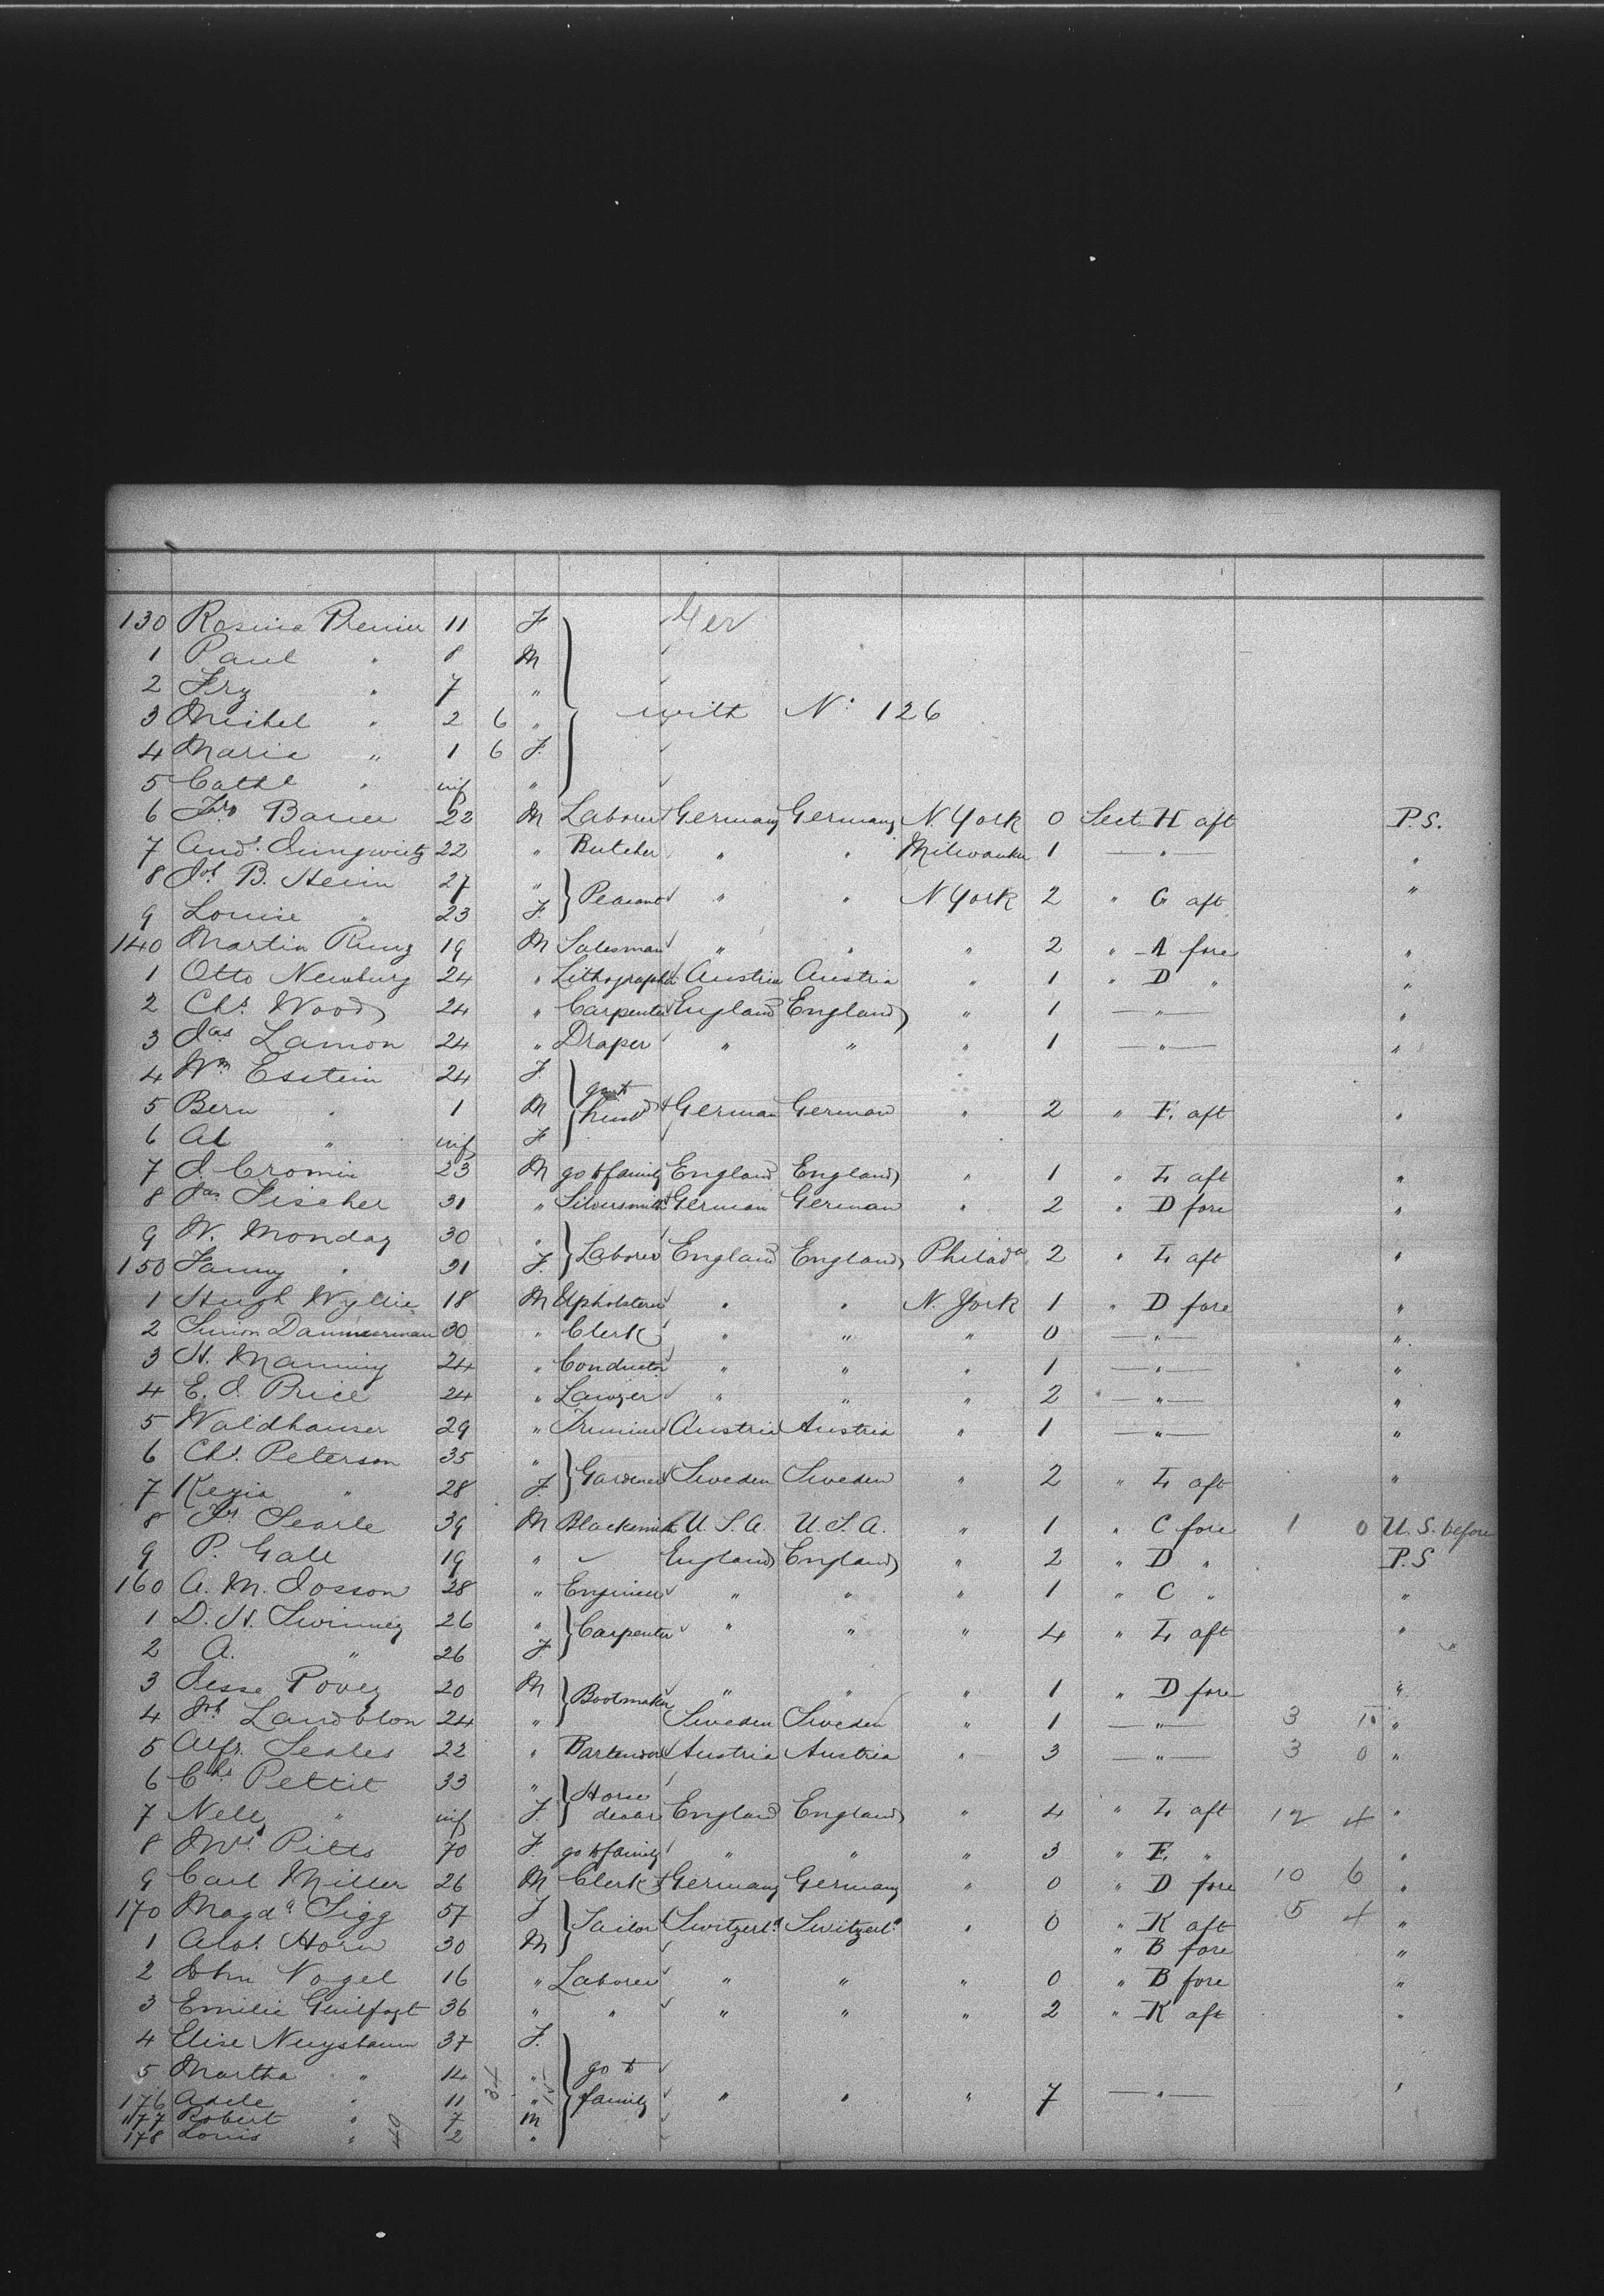 130 Rosina Premier 11 F Ger
1 Paul " 8 M
2 Frz " 7 "
3 Michel " 2 6 " with No. 126
4 Maria " 1 6 F
5 Cathe " inf "
6 Bauer 22 M Laborer Germany Germany N. York 0 Sect. H aft P.S.
7 Andr. 22 " Butcher " " Milwaukee 1 — " — "
8 Jos B. Heim 27 " Peasant " " N York 2 " G aft "
9 Louise " 23 F
140 Martin Rung 19 M Salesman " " " 2 " A fore "
1 Otto Newburg 24 " Lithographer Austria Austria " 1 " D " "
2 Chs. Wood 24 " Carpenter England England " 1 — " — "
3 Jas Lamon 24 " Draper " " " 1 — " — "
4 Wm Esstein 24 F go to
5 Bern " 1 M husbd German German " 2 " E. aft "
6 Al " inf F
7 J. Cromin 23 M go to family England England " 1 " L aft "
8 Jas Fischer 31 " Silversmith German German " 2 " D fore "
9 W. Monday 30 " Laborer England England Philada 2 " L aft "
150 Fanny " 31 F.
1 Hugh Wyllie 18 M Upholsterer " " N. York 1 " D fore "
2 Simon Dammerman 30 " Clerk " " " 0 — " — "
3 H. Manning 24 " Conductor " " " 1 — " — "
4 E. J. Price 24 " Lawyer " " " 2 " — " — "
5 Waldhauser 29 " Austria Austria " 1 — " — "
6 Chs. Peterson 35 " Gardener Sweden Sweden " 2 " L aft "
7 Kezia " 28 F.
8 Searle 39 M Blacksmith U. S. A. U. S. A. " 1 " C fore 1 0 U. S. before
9 P. Gall 19 " England England " 2 " D " P.S
160 A. M. Josson 28 " Engineer " " " 1 " C " "
1 D. H. Swinney 26 " Carpenter " " " 4 " L aft "
2 A. " 26 F
3 Jesse Povey 20 M Bootmaker " " " 1 " D fore "
4 Joh Landblon 24 " Sweden Sweden " 1 — " — 3 "
5 Alfr. Seales 22 " Bartender Austria Austria " 3 — " — 3 0 "
6 Chs Pettit 33 " Horse
7 Nelly " inf F dealer England England " 4 " L aft 12 4 "
8 Mrs. Pitts 70 F. go to family " " " 3 " E. " "
9 Carl Miller 26 M Clerk Germany Germany " 0 " D fore 10 6 "
170 Magda Sigg 57 F Tailor Switzerl. Switzerl. " 0 " K aft 5 4 "
1 Alos. Horn 30 M " B fore "
2 John Vogel 16 " Laborer " " " 0 " B fore "
3 Emilie 36 " " " " " 2 " K aft "
4 Elise 37 F.
5 Martha " 14 " go to
176 Adele " 11 " family " " " 7 — " — "
177 Robert " 7 M
178 Louis " 2 "